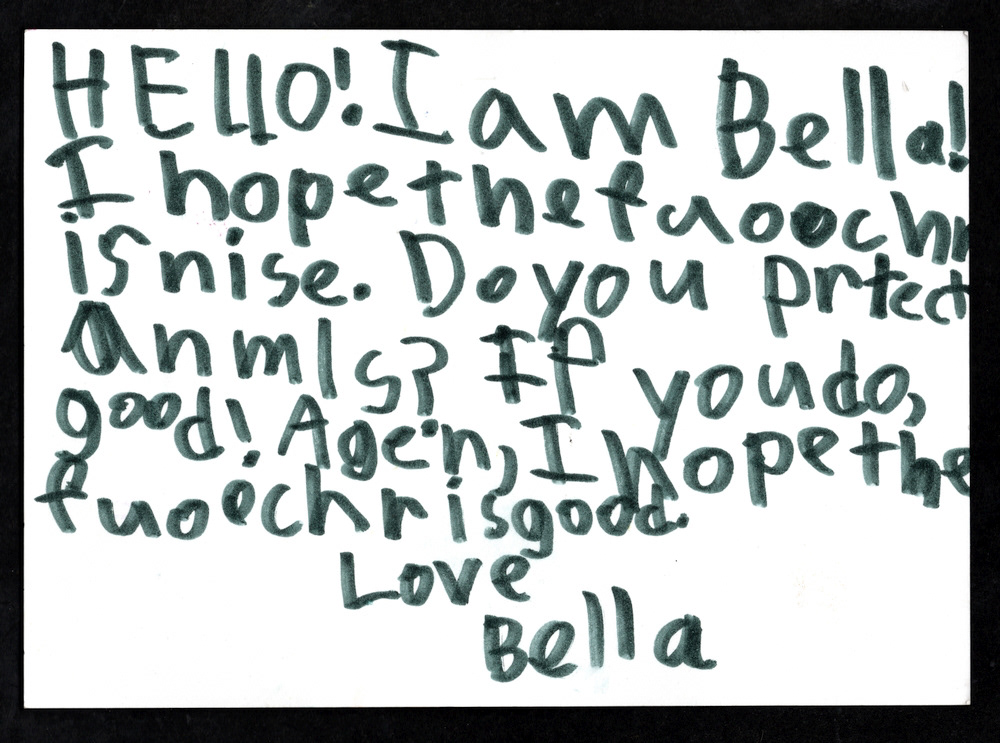 HELLO! I am Bella!
I hope the fuoochr
is nise. Do you prtect
Anmls? If you do,
good! Agen, I hope the
fuoochr is good.
Love
Bella